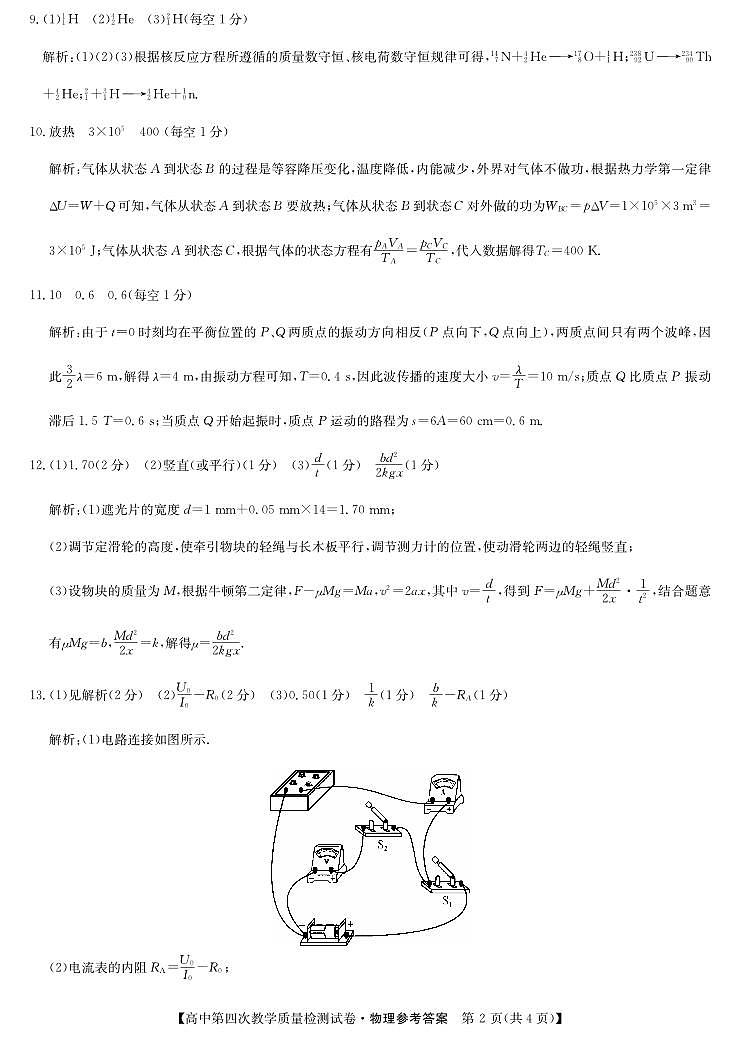 9.(1)¹₁H (2)⁴₂He (3)²₁H(每空1分)
解析:(1)(2)(3)根据核反应方程所遵循的质量数守恒、核电荷数守恒规律可得,¹⁴₇N+⁴₂He⟶¹⁷₈O+¹₁H;²³⁸₉₂U⟶²³⁴₉₀Th
+⁴₂He;²₁+³₁H⟶⁴₂He+¹₀n.
10.放热 3×10⁵ 400(每空1分)
解析:气体从状态A到状态B的过程是等容降压变化,温度降低,内能减少,外界对气体不做功,根据热力学第一定律
ΔU=W+Q可知,气体从状态A到状态B要放热;气体从状态B到状态C对外做的功为W_BC=pΔV=1×10⁵×3 m³=
3×10⁵ J;气体从状态A到状态C,根据气体的状态方程有p_AV_A/T_A=p_CV_C/T_C,代入数据解得T_C=400 K.
11.10 0.6 0.6(每空1分)
解析:由于t=0时刻均在平衡位置的P、Q两质点的振动方向相反(P点向下,Q点向上),两质点间只有两个波峰,因
此3/2λ=6 m,解得λ=4 m,由振动方程可知,T=0.4 s,因此波传播的速度大小v=λ/T=10 m/s;质点Q比质点P振动
滞后1.5 T=0.6 s;当质点Q开始起振时,质点P运动的路程为s=6A=60 cm=0.6 m.
12.(1)1.70(2分) (2)竖直(或平行)(1分) (3)d/t(1分) bd²/2kgx(1分)
解析:(1)遮光片的宽度d=1 mm+0.05 mm×14=1.70 mm;
(2)调节定滑轮的高度,使牵引物块的轻绳与长木板平行,调节测力计的位置,使动滑轮两边的轻绳竖直;
(3)设物块的质量为M,根据牛顿第二定律,F-μMg=Ma,v²=2ax,其中v=d/t,得到F=μMg+Md²/2x·1/t²,结合题意
有μMg=b,Md²/2x=k,解得μ=bd²/2kgx.
13.(1)见解析(2分) (2)U₀/I₀-R₀(2分) (3)0.50(1分) 1/k(1分) b/k-R_A(1分)
解析:(1)电路连接如图所示.
A
- +
S₂
V
- +
S₁
- +
(2)电流表的内阻R_A=U₀/I₀-R₀;
【高中第四次教学质量检测试卷·物理参考答案 第2页(共4页)】